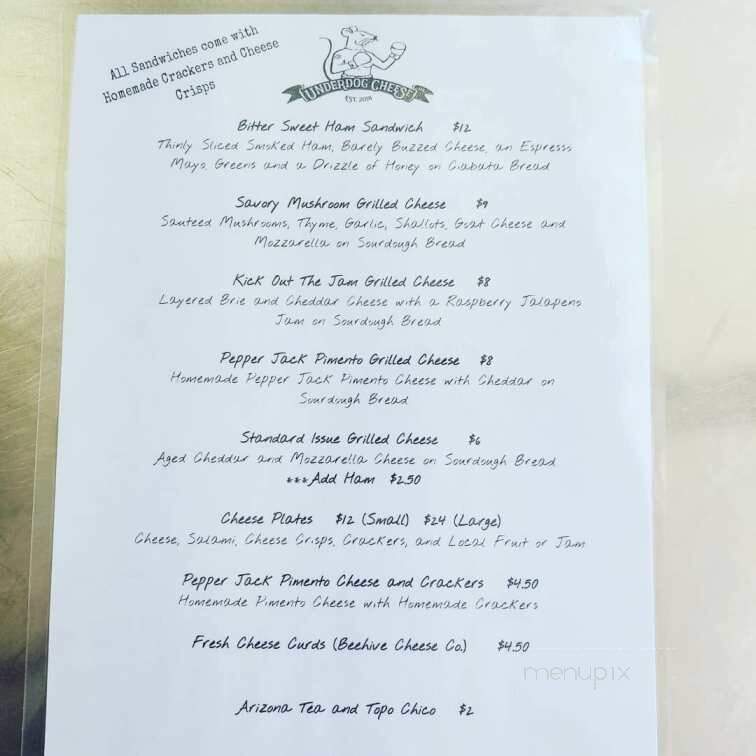 All Sandwiches come with
Homemade Crackers and Cheese
Crisps
UNDERDOG CHEESE
EST. 2018
Bitter Sweet Ham Sandwich $12
Thinly Sliced Smoked Ham, Barely Buzzed Cheese, an Espresso
Mayo, Greens and a Drizzle of Honey on Ciabata Bread
Savory Mushroom Grilled Cheese $9
Sauteed Mushrooms, Thyme, Garlic, Shallots, Goat Cheese and
Mozzarella on Sourdough Bread
Kick Out The Jam Grilled Cheese $8
Layered Brie and Cheddar Cheese with a Raspberry Jalapeno
Jam on Sourdough Bread
Pepper Jack Pimento Grilled Cheese $8
Homemade Pepper Jack Pimento Cheese with Cheddar on
Sourdough Bread
Standard Issue Grilled Cheese $6
Aged Cheddar and Mozzarella Cheese on Sourdough Bread
***Add Ham $2.50
Cheese Plates $12 (Small) $24 (Large)
Cheese, Salami, Cheese Crisps, Crackers, and Local Fruit or Jam
Pepper Jack Pimento Cheese and Crackers $4.50
Homemade Pimento Cheese with Homemade Crackers
Fresh Cheese Curds (Beehive Cheese Co.) $4.50
menupix
Arizona Tea and Topo Chico $2